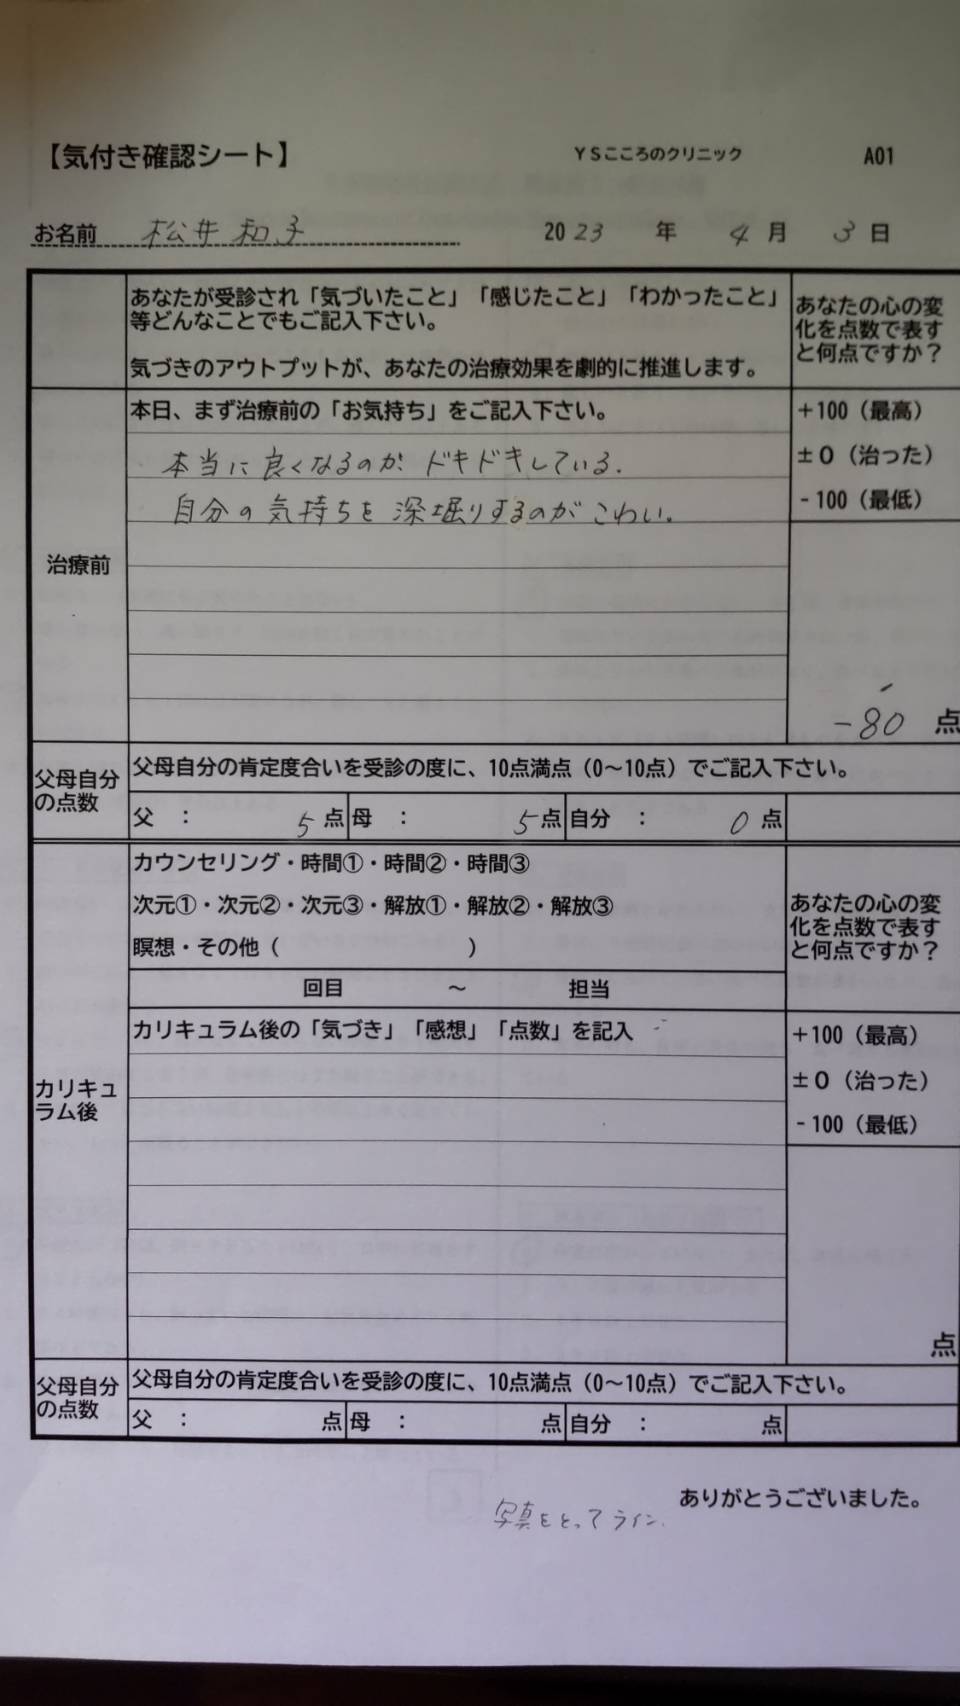 【気付き確認シート】 YSこころのクリニック A01
お名前 松井 和子 2023 年 4 月 3 日
あなたが受診され「気づいたこと」「感じたこと」「わかったこと」
等どんなことでもご記入下さい。
気づきのアウトプットが、あなたの治療効果を劇的に推進します。
あなたの心の変
化を点数で表す
と何点ですか？
治療前
本日、まず治療前の「お気持ち」をご記入下さい。
本当に良くなるのか、ドキドキしている。
自分の気持ちを深堀りするのがこわい。
+100（最高）
±0（治った）
-100（最低）
-80 点
父母自分
の点数
父母自分の肯定度合いを受診の度に、10点満点（0～10点）でご記入下さい。
父 ： 5 点 母 ： 5 点 自分 ： 0 点
カリキュ
ラム後
カウンセリング・時間①・時間②・時間③
次元①・次元②・次元③・解放①・解放②・解放③
瞑想・その他（ ）
回目 ～ 担当
あなたの心の変
化を点数で表す
と何点ですか？
カリキュラム後の「気づき」「感想」「点数」を記入
+100（最高）
±0（治った）
-100（最低）
点
父母自分
の点数
父母自分の肯定度合いを受診の度に、10点満点（0～10点）でご記入下さい。
父 ： 点 母 ： 点 自分 ： 点
ありがとうございました。
写真をとってライン